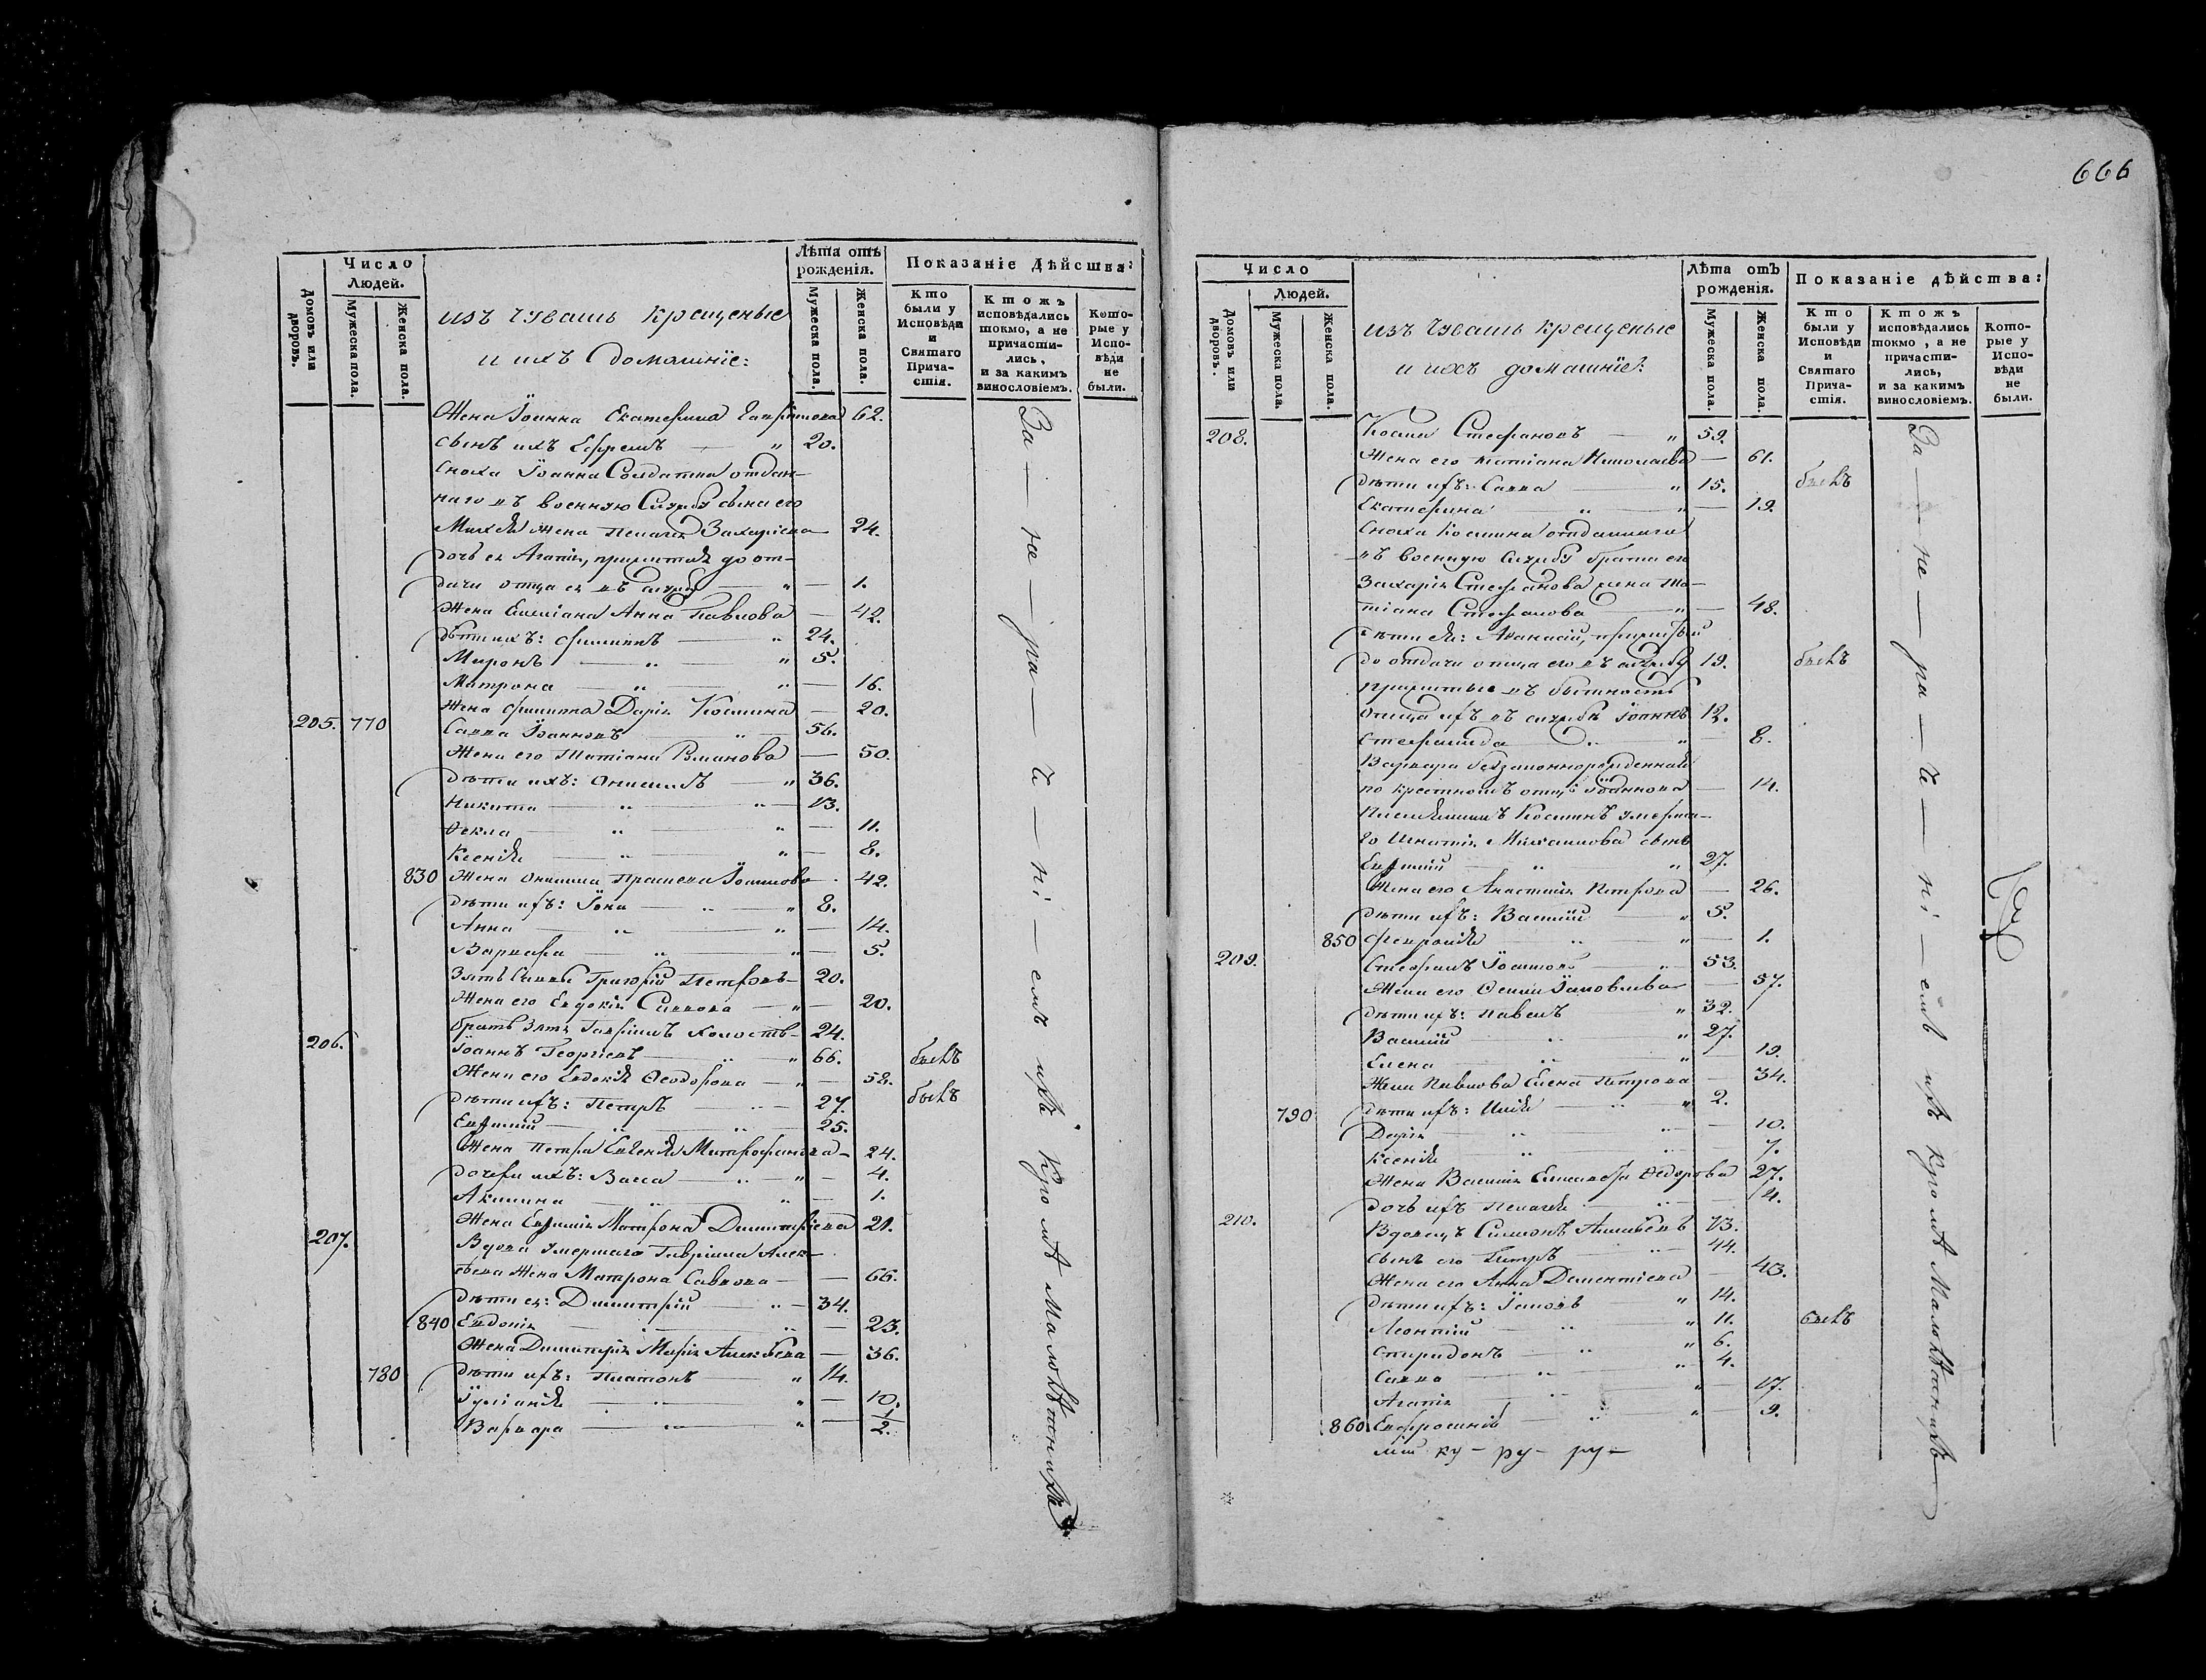 666
Число Людей.
Лѣта отъ рожденія.
Показаніе Дѣйства:
Домовъ или дворовъ.
Мужеска пола.
Женска пола.
изъ Чувашъ крещеные
и ихъ домашніе:
Мужеска пола.
Женска пола.
Кто были у Исповѣди и Святаго Прича-стія.
Ктожъ исповѣдались токмо, а не причасти-лись, и за какимъ винословіемъ.
Кото-рые у Испо-вѣди не были.
Жена Іоанна Екатерина 62.
сынъ ихъ Ефремъ — " 20.
Сноха Іоанна Солдатка отдан-
наго въ военную Службу сына его
жена Пелагія Захаріева 24.
дочь ея Агапія, прижитая до от-
дачи отца ея въ службу — " — 1.
Жена Емиліана Анна Павлова — 42.
дѣти ихъ: Филиппъ — " 24.
Миронъ — " — " 5.
Матрона — " — " — 16.
Жена Филиппа Дарія Космина — 20.
205. 770 Савва Іоанновъ — " 56.
Жена его Татіана Романова — 50.
дѣти ихъ: Онисимъ — " 36.
Никита — " — " 13.
Ѳекла — " — " — 11.
Ксенія — " — " — 8.
830 Жена Онисима 42.
дѣти ихъ: Іона — " — " 8.
Анна — " — " — 14.
Варвара — " — " — 5.
Зять Саввы Григорій Петровъ — 20.
Жена его Евдокія Саввова — " — 20.
братъ Зятя Гавріилъ холостъ — 24.
206. Іоаннъ Георгіевъ — " — " 66. былъ
Жена его Евдокія Ѳеодорова — " — 58.
дѣти ихъ: Петръ — " — 27. былъ
Евфимій — " — " — 25.
Жена Петра Евгенія Митрофанова — 24.
дочери ихъ: Васса — " — " — 4.
Акилина — " — " — 1.
Жена Евфимія Матрона Димитріева 21.
207. Вдова умершаго Гавріила Алек-
сѣева Жена Матрона Саввова — — 66.
дѣти ея: Димитрій — " — 34.
840 Евдокія — " — " — 23.
Жена Димитрія Марія Алексѣева — 36.
780 дѣти ихъ: Платонъ — " 14.
Іуліанія — " — " — 10.
Варвара — " — " — 1/2.
За — не — ра — че — ні — емъ ихъ кромѣ малолѣтнихъ
Число Людей.
Лѣта отъ рожденія.
Показаніе дѣйства:
Домовъ или дворовъ.
Мужеска пола.
Женска пола.
изъ Чувашъ крещеные
и ихъ домашніе:
Мужеска пола.
Женска пола.
Кто были у Исповѣди и Святаго Прича-стія.
Ктожъ исповѣдались токмо, а не причасти-лись, и за какимъ винословіемъ.
Кото-рые у Испо-вѣди не были.
208. Косма Стефановъ — " 59.
Жена его Татіана Николаева — 61.
дѣти ихъ: Савва — " 15. былъ
Екатерина — " — " — 19.
Сноха Космина отданнаго
въ военную Службу брата его
Захарія Стефанова жена Та-
тіана Стефанова — " — 48.
дѣти ея: Аѳанасій, прижитый
до отдачи отца его въ службу 19. былъ
прижитые въ бытность
отца ихъ въ службѣ Іоаннъ 12.
Стефанида — " — " — 8.
Варвара беззаконнорожденная
по крестномъ отцѣ Іоаннова — 14.
Племянникъ Косминъ умерша-
го Игнатія Михаилова сынъ
Евфимій — " — " 27.
Жена его Анастасія Петрова — 26.
дѣти ихъ: Василій — " 5.
850 Февронія — " — " — 1.
209. Стефанъ — " 53.
Жена его Іаковлева — 57.
дѣти ихъ: Павелъ — " 32.
Василій — " — " 27.
Елена — " — " — 19.
Жена Павлова Елена Петрова — 34.
790 дѣти ихъ: Илія — " — " 2.
Дарія — " — " — 10.
Ксенія — " — " — 7.
Жена Василія Ѳедорова 27.
дочь ихъ Пелагія — " — 4.
210. Вдовецъ Симеонъ 73.
Сынъ его Петръ — " — 44.
Жена его Анна Дементіева — 43.
дѣти ихъ: Іаковъ — " 14.
Леонтій — " — " 11. былъ
Спиридонъ — " — " 6.
Савва — " — " 4.
Агапія — " — " — 17.
860 Евфросинія — " — " — 9.
ру — ру —
За — не — ра — че — ні — емъ ихъ кромѣ Малолѣтнихъ